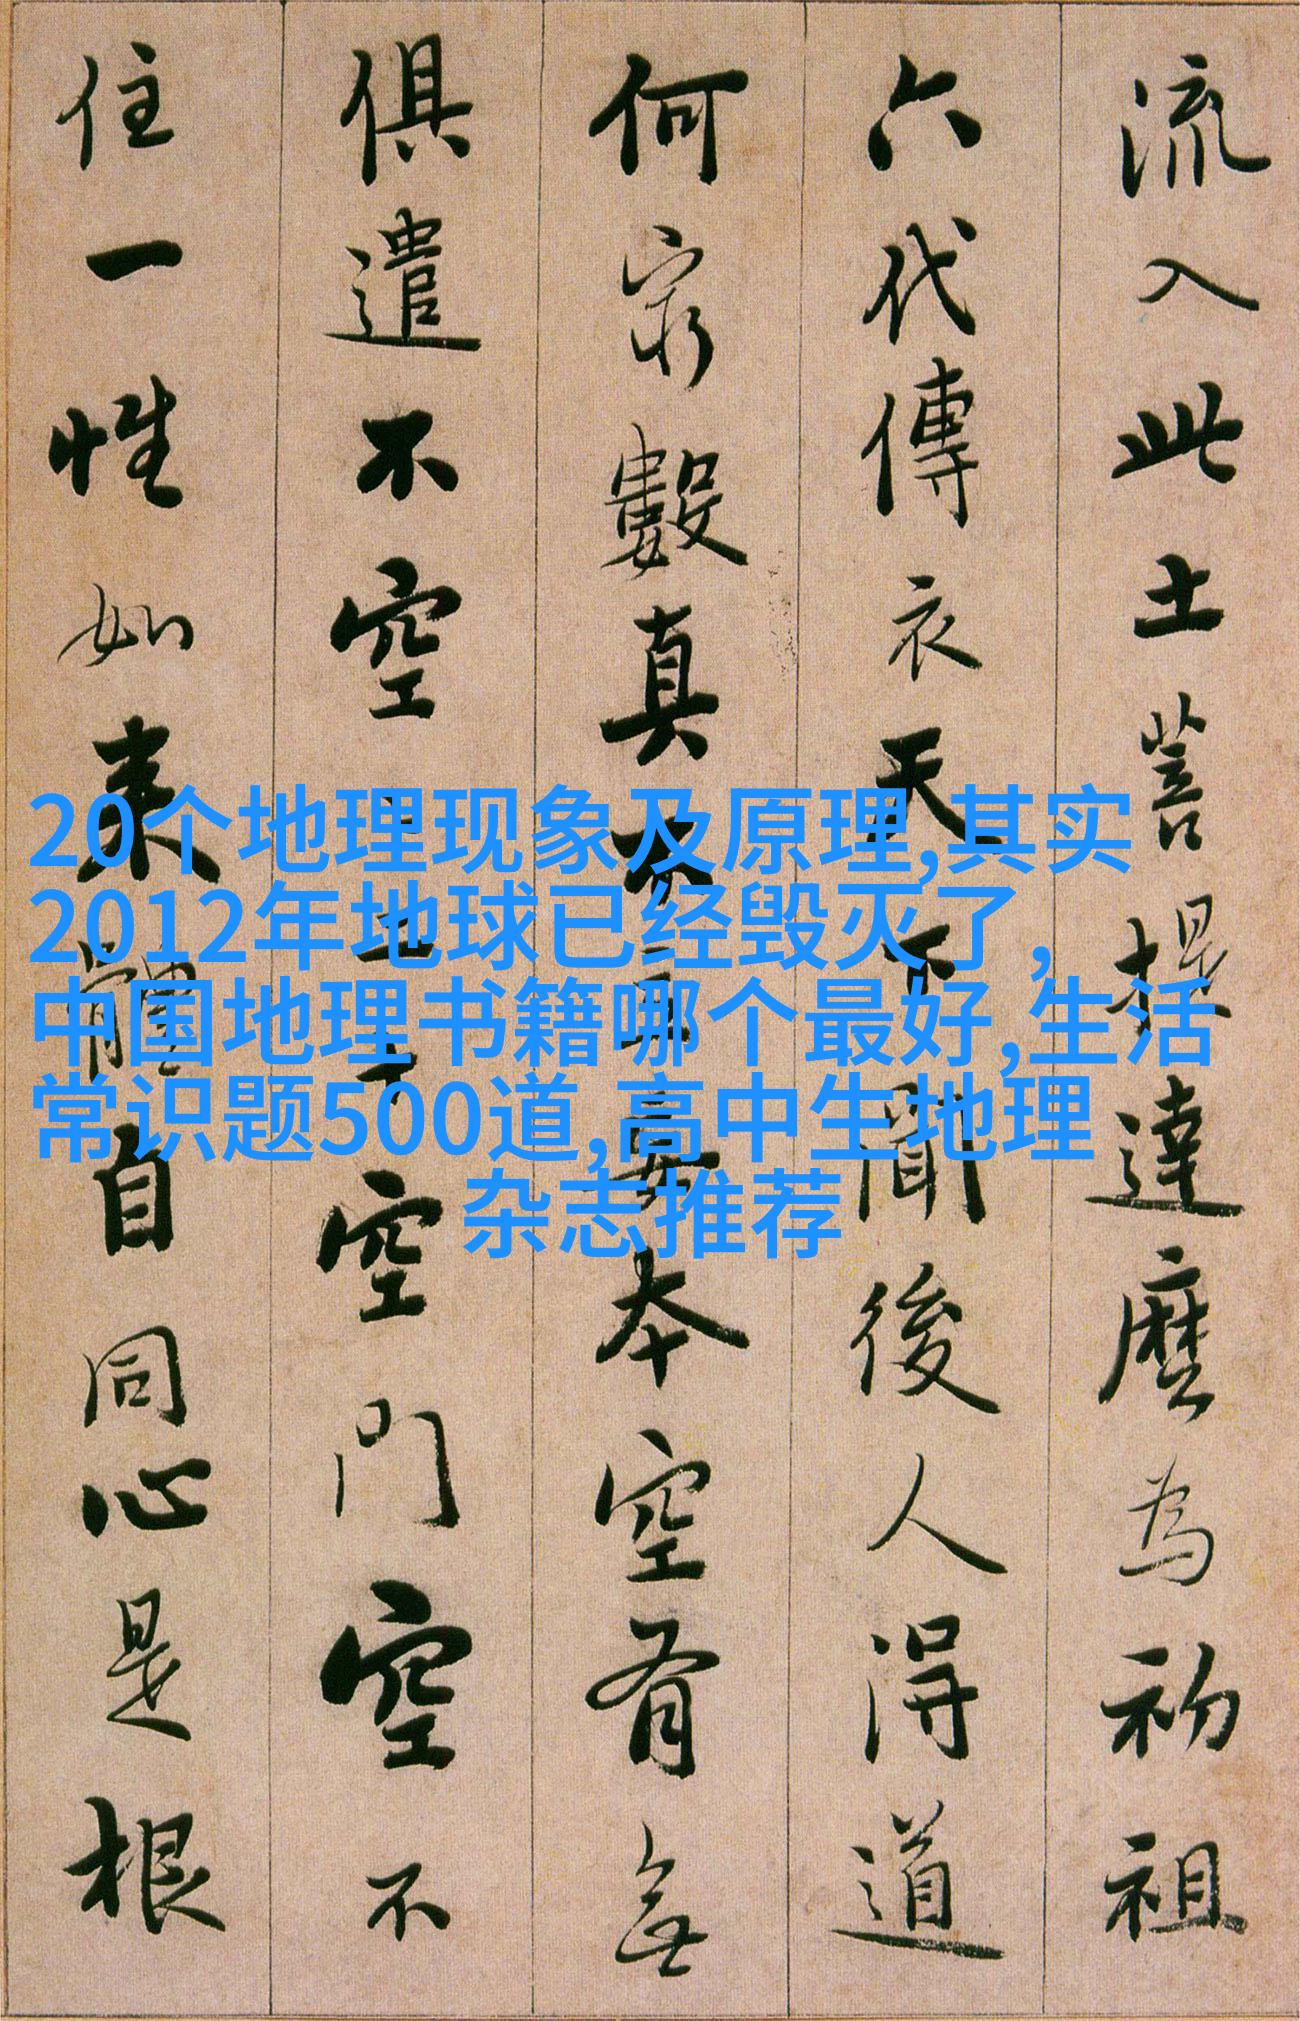 流入此土菩提達磨為初祖
六代傳衣天下聞後人得道
何窮數真不立妄本空有無
俱遣不空二十空門空不
住一性如来體自同心是根
20个地理现象及原理,其实
2012年地球已经毁灭了,
中国地理书籍哪个最好,生活
常识题500道,高中生地理
杂志推荐